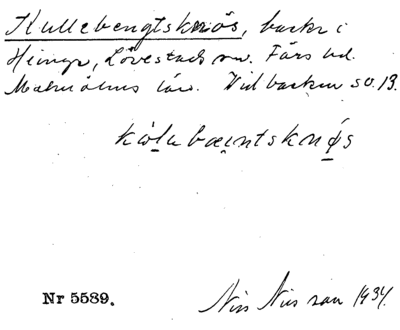 Kullebengtsknös, backe i
Heinge, Lövestads sn. Färs hd.
Malmöhus län. Vid backen so. 13.
kȯ́labæntsknø̀s
Nr 5589.
Nils Nilsson 1934.